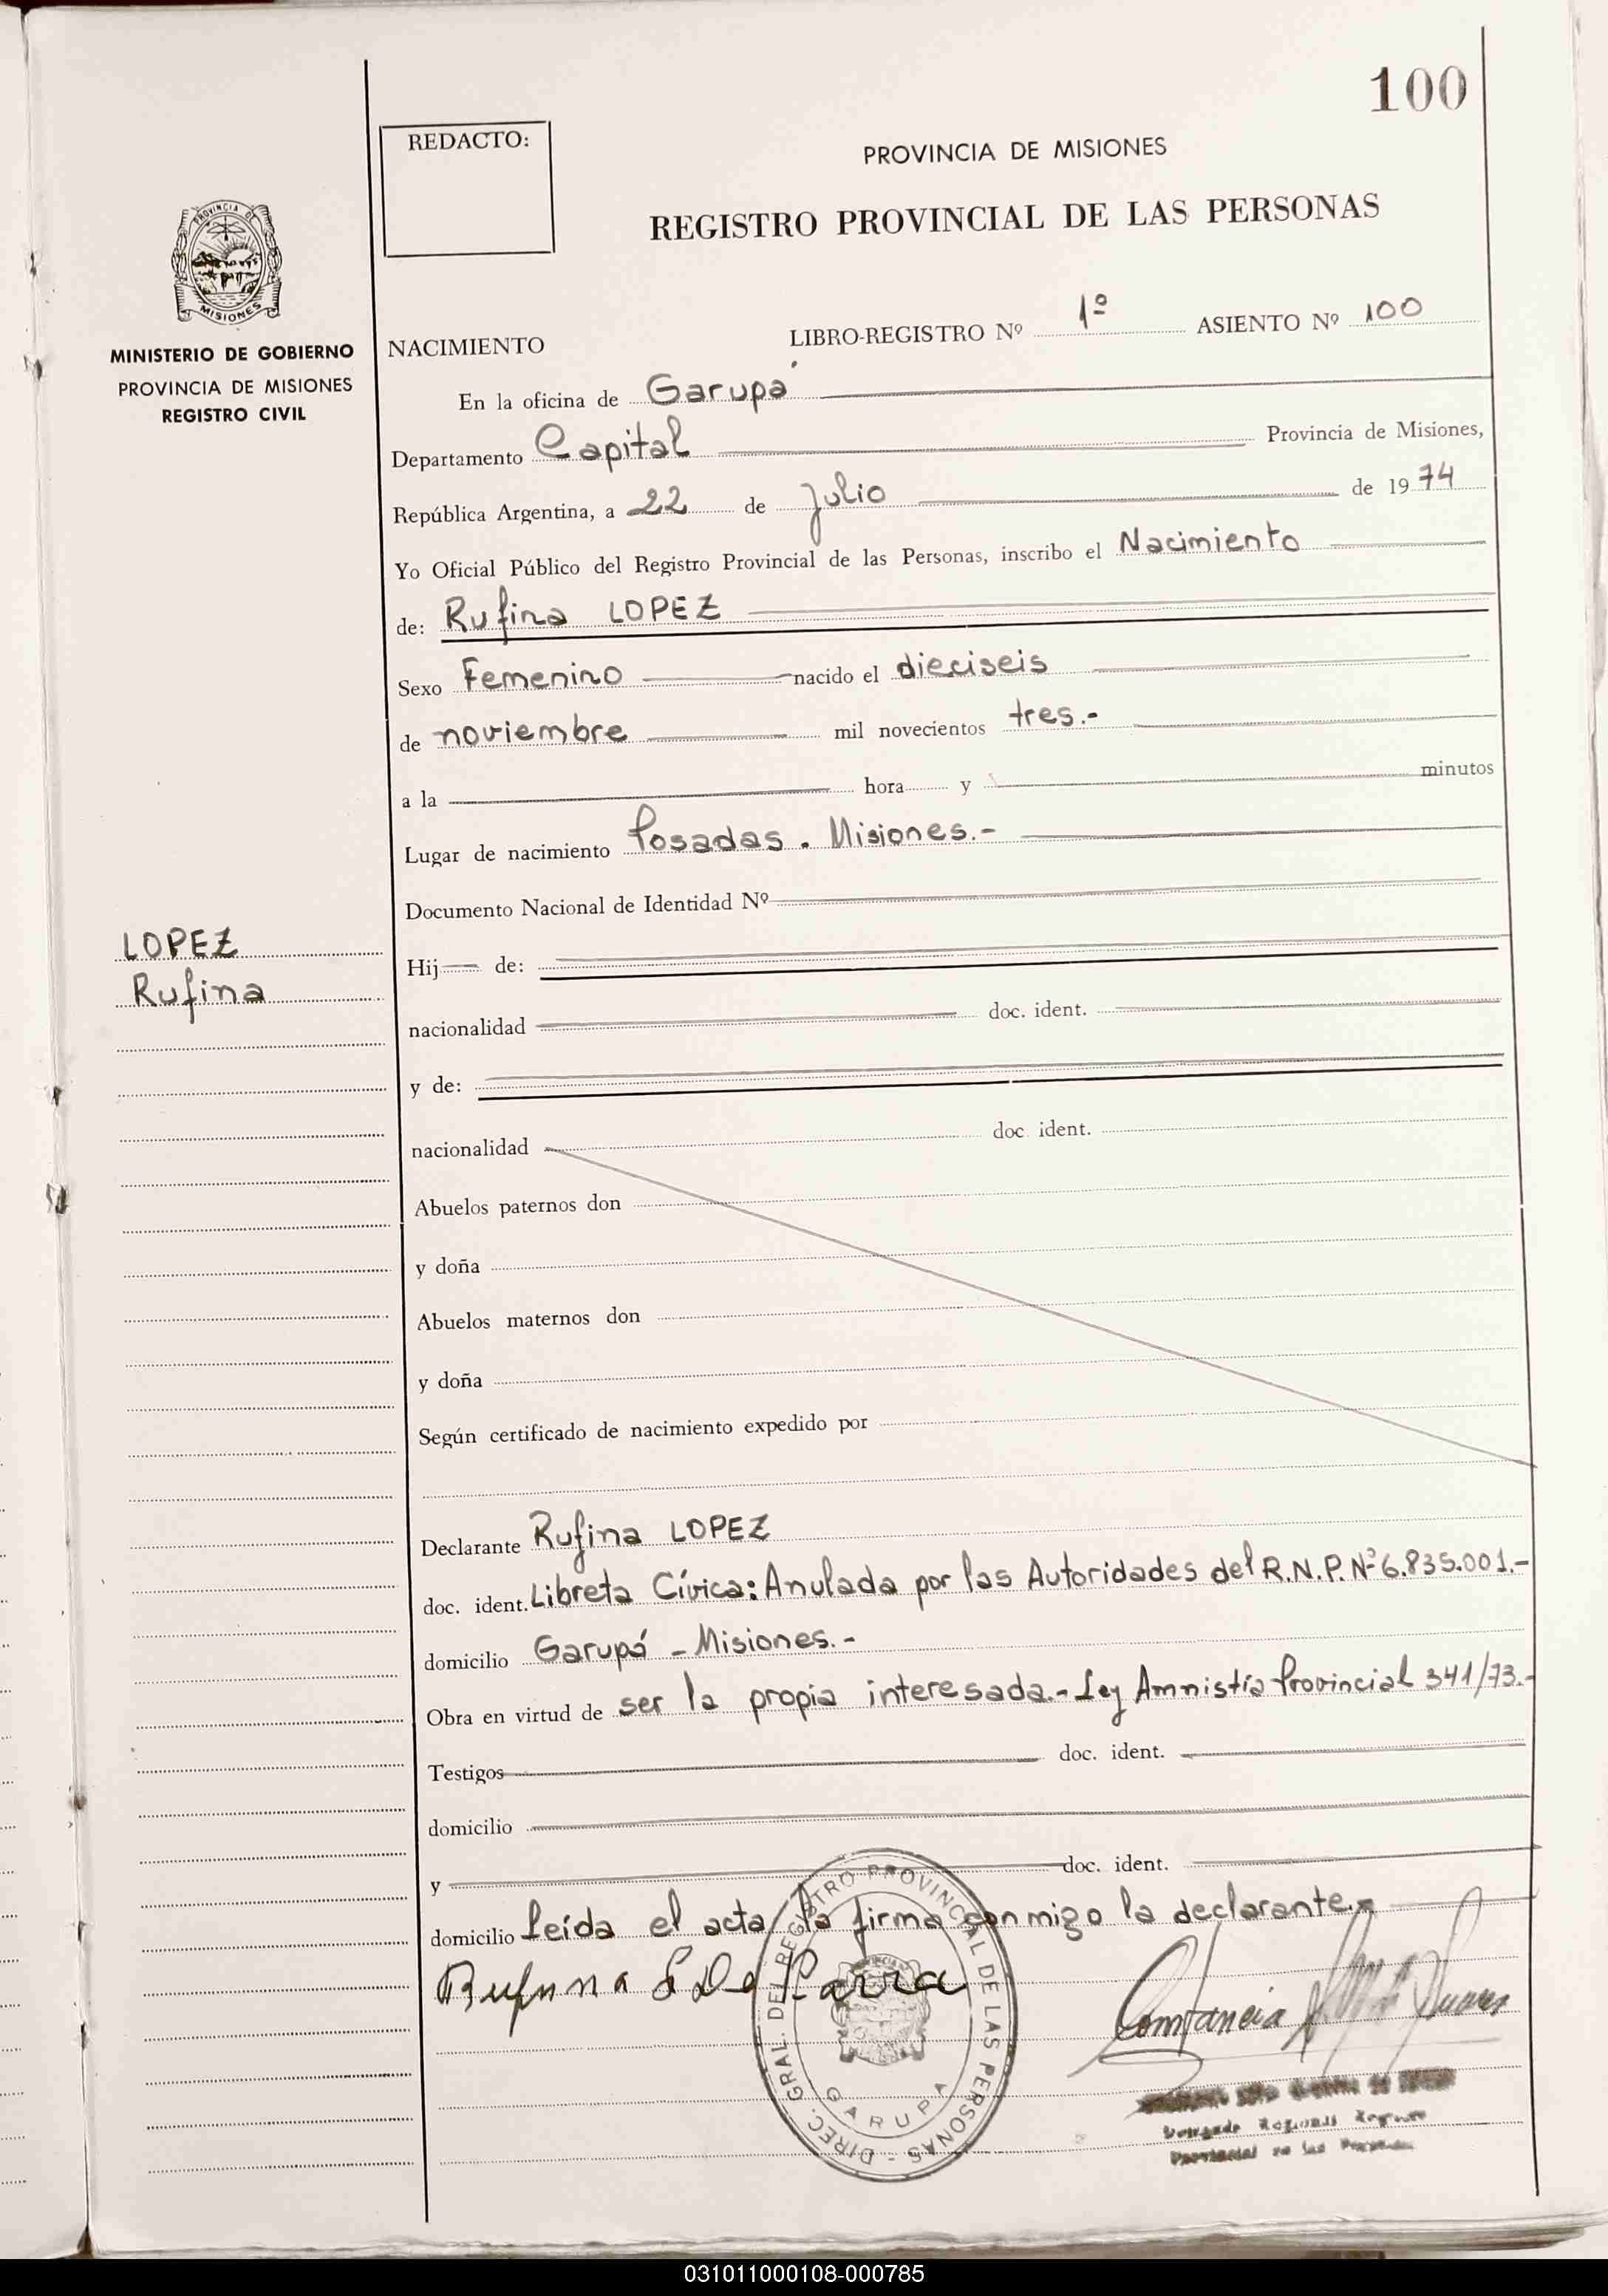 100
REDACTO:
PROVINCIA DE MISIONES
REGISTRO PROVINCIAL DE LAS PERSONAS
PROVINCIA DE
MISIONES
MINISTERIO DE GOBIERNO
PROVINCIA DE MISIONES
REGISTRO CIVIL
NACIMIENTO LIBRO-REGISTRO Nº 1º ASIENTO Nº 100
En la oficina de Garupá
Departamento Capital Provincia de Misiones,
República Argentina, a 22 de Julio de 1974
Yo Oficial Público del Registro Provincial de las Personas, inscribo el Nacimiento
de: Rufina LOPEZ
Sexo Femenino nacido el dieciseis
de noviembre mil novecientos tres.-
a la hora y minutos
Lugar de nacimiento Posadas. Misiones.-
Documento Nacional de Identidad Nº
LOPEZ
Rufina
Hij de:
nacionalidad doc. ident.
y de:
nacionalidad doc ident.
Abuelos paternos don
y doña
Abuelos maternos don
y doña
Según certificado de nacimiento expedido por
Declarante Rufina LOPEZ
doc. ident. Libreta Cívica: Anulada por las Autoridades del R.N.P. Nº 6.835.001.-
domicilio Garupá - Misiones.-
Obra en virtud de ser la propia interesada.- Ley Amnistía Provincial 341/73.-
Testigos doc. ident.
domicilio
y doc. ident.
domicilio Leída el acta, la firma conmigo la declarante.-
Rufina L De Parra
Constancia
DIREC. GRAL. DEL REGISTRO PROVINCIAL DE LAS PERSONAS -
GARUPA
Provincial de las Personas
031011000108-000785